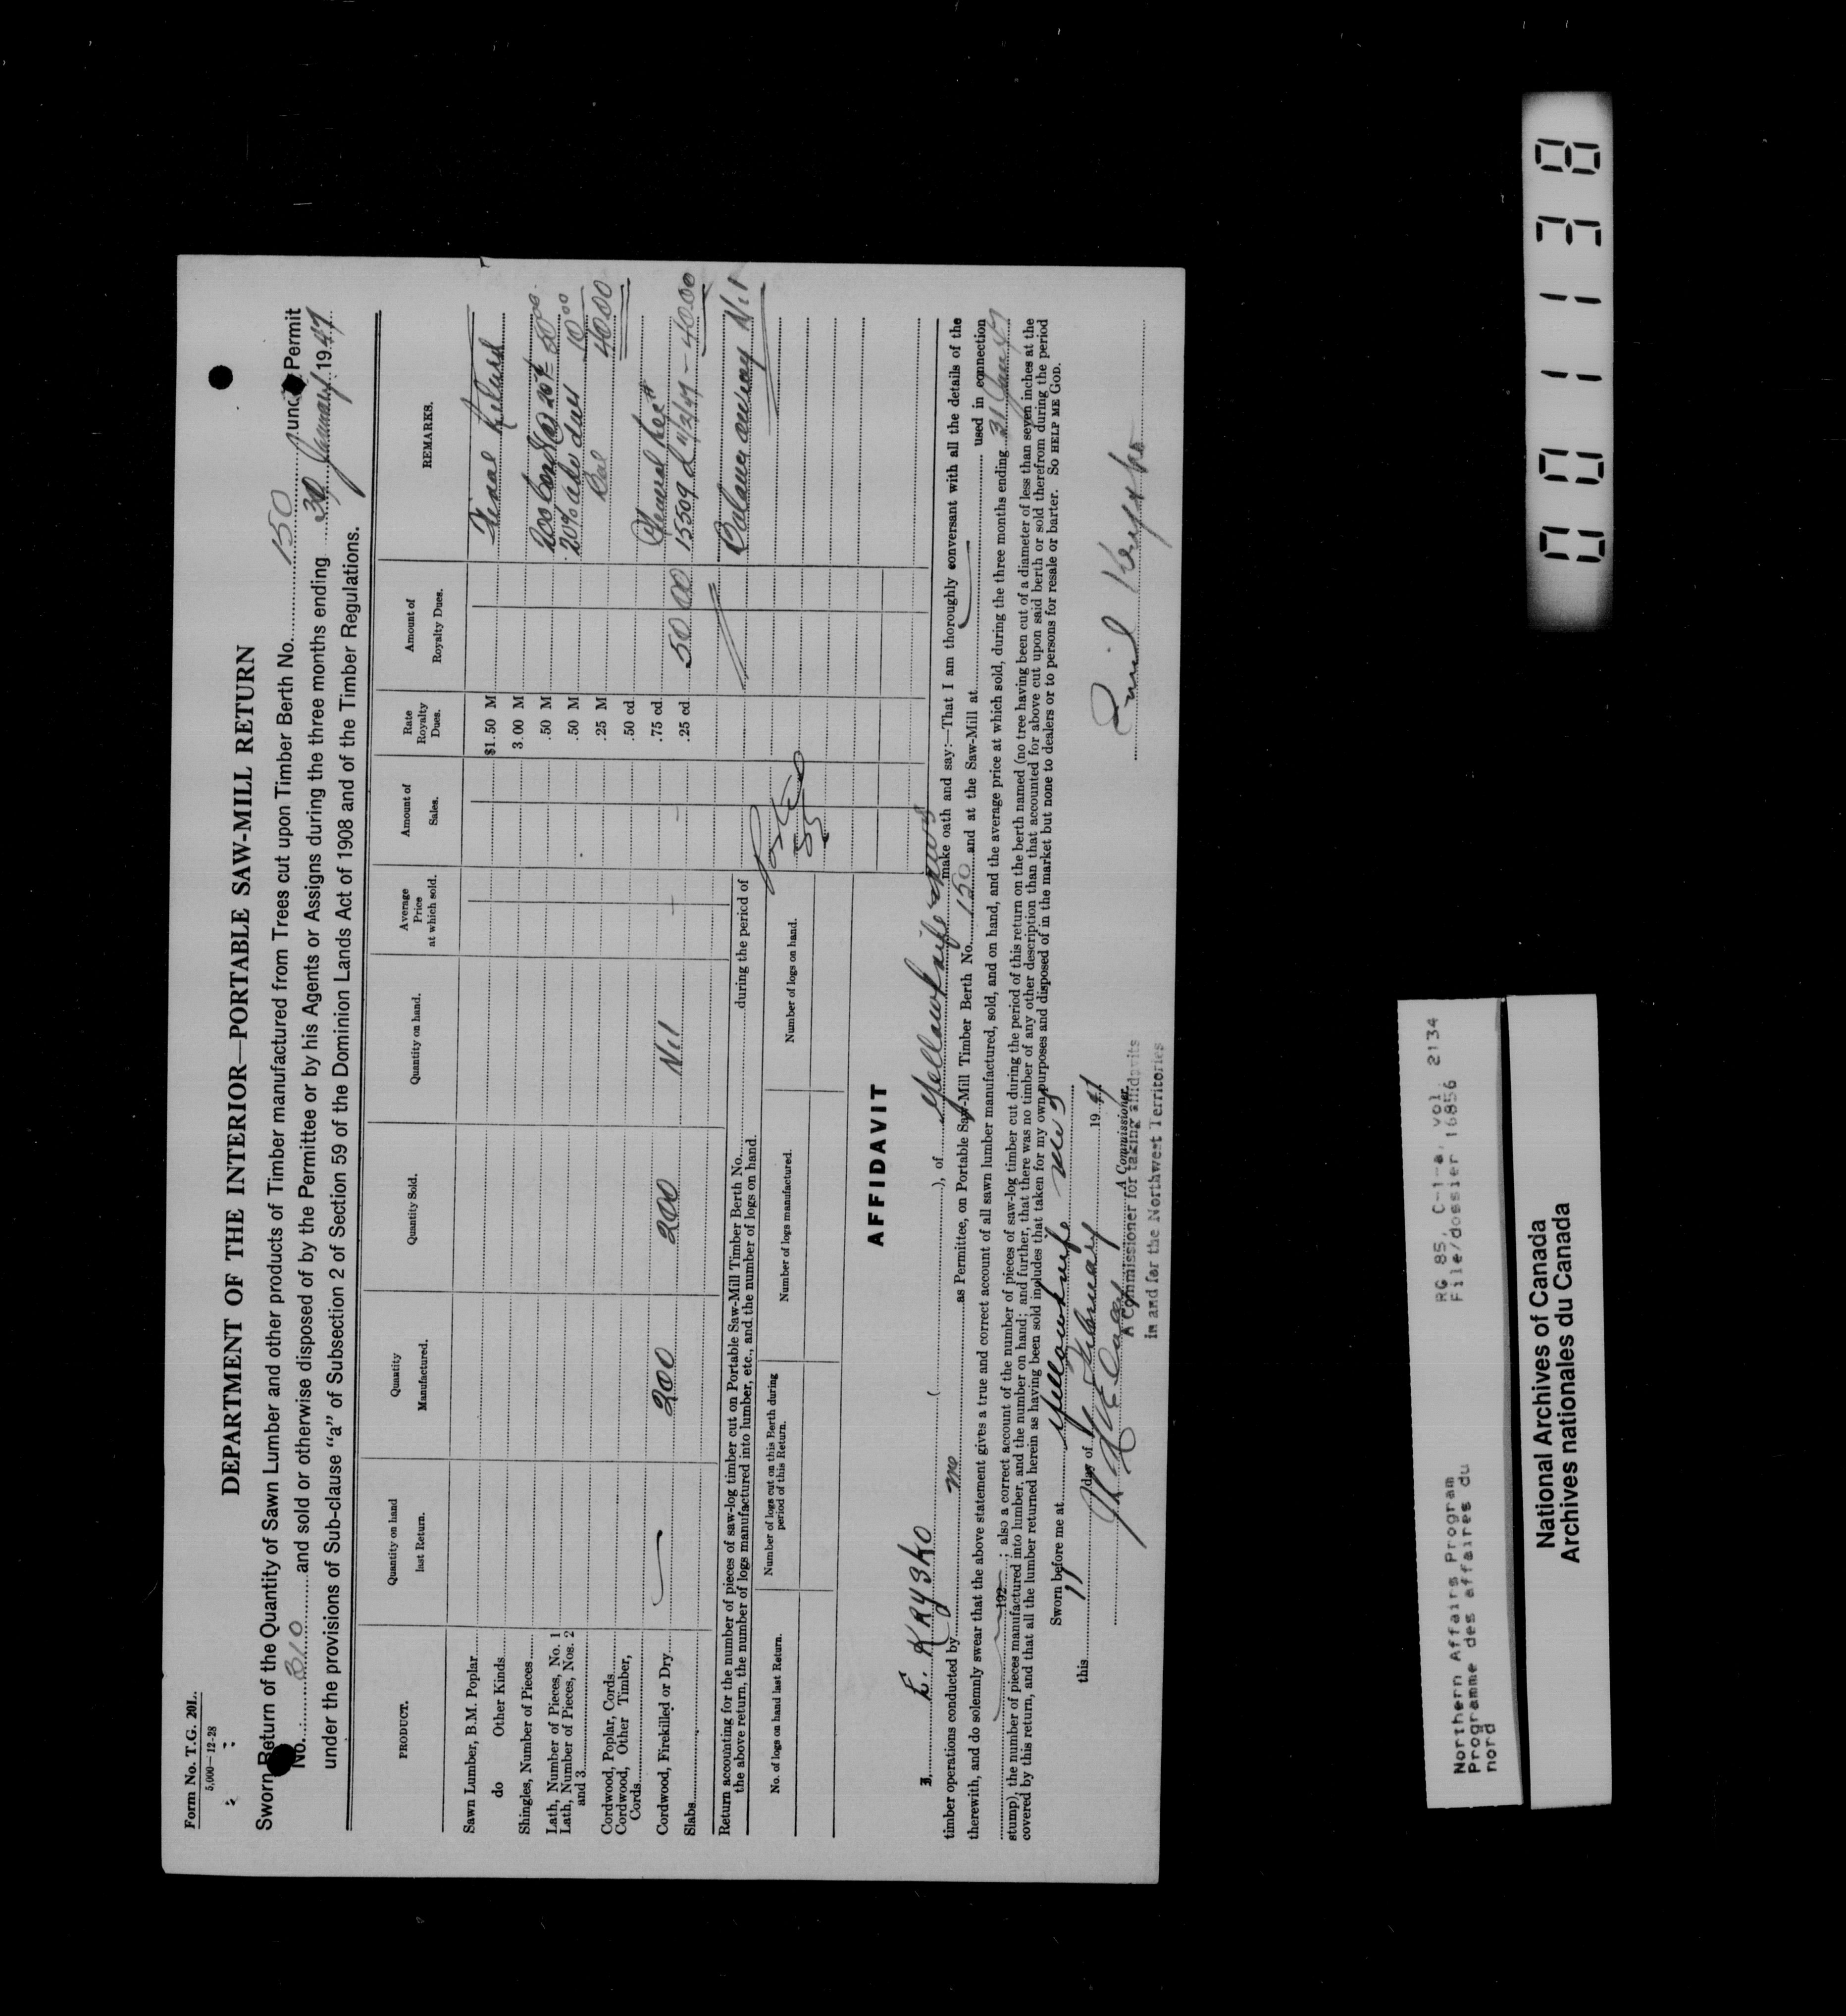 Form No. T.G. 20L.
5,000—12-28
DEPARTMENT OF THE INTERIOR—PORTABLE SAW-MILL RETURN
Sworn Return of the Quantity of Sawn Lumber and other products of Timber manufactured from Trees cut upon Timber Berth No. 150 under Permit
No. 310 and sold or otherwise disposed of by the Permittee or by his Agents or Assigns during the three months ending January 1947
under the provisions of Sub-clause "a" of Subsection 2 of Section 59 of the Dominion Lands Act of 1908 and of the Timber Regulations.
PRODUCT. Quantity on hand last Return. Quantity Manufactured. Quantity Sold. Quantity on hand. Average Price at which sold. Amount of Sales. Rate Royalty Dues. Amount of Royalty Dues. REMARKS.
Sawn Lumber, B.M. Poplar $1.50 M Final Return
do Other Kinds 3.00 M
Shingles, Number of Pieces .50 M 200 Cords @
Lath, Number of Pieces, No. 1 .50 M 20% dues 10 00
Lath, Number of Pieces, Nos. 2 and 3 .25 M 40.00
Cordwood, Poplar, Cords .50 cd
Cordwood, Other Timber, Cords .75 cd General
Cordwood, Firekilled or Dry — 200 200 Nil — — .25 cd 50 00 15509 11/2/47 — 40.00
Slabs
Balance owing Nil
Return accounting for the number of pieces of saw-log timber cut on Portable Saw-Mill Timber Berth No. during the period of
the above return, the number of logs manufactured into lumber, etc., and the number of logs on hand.
No. of logs on hand last Return. Number of logs cut on this Berth during period of this Return. Number of logs manufactured. Number of logs on hand.
AFFIDAVIT
I, E. Krysko ( ), of Yellowknife make oath and say:—That I am thoroughly conversant with all the details of the
timber operations conducted by me as Permittee, on Portable Saw-Mill Timber Berth No. 150 and at the Saw-Mill at used in connection
therewith, and do solemnly swear that the above statement gives a true and correct account of all sawn lumber manufactured, sold, and on hand, and the average price at which sold, during the three months ending 31 Jan 47
192 ; also a correct account of the number of pieces of saw-log timber cut during the period of this return on the berth named (no tree having been cut of a diameter of less than seven inches at the
stump), the number of pieces manufactured into lumber, and the number on hand; and further, that there was no timber of any other description than that accounted for above cut upon said berth or sold therefrom during the period
covered by this return, and that all the lumber returned herein as having been sold includes that taken for my own purposes and disposed of in the market but none to dealers or to persons for resale or barter. So HELP ME GOD.
Sworn before me at Yellowknife
this 11 day of February 1947
Emil Krysko
A Commissioner.
A Commissioner for taking affidavits
in and for the Northwest Territories
001138
Northern Affairs Program
Programme des affaires du
nord
RG 85, C-1-a, vol. 2134
File/dossier 16856
National Archives of Canada
Archives nationales du Canada